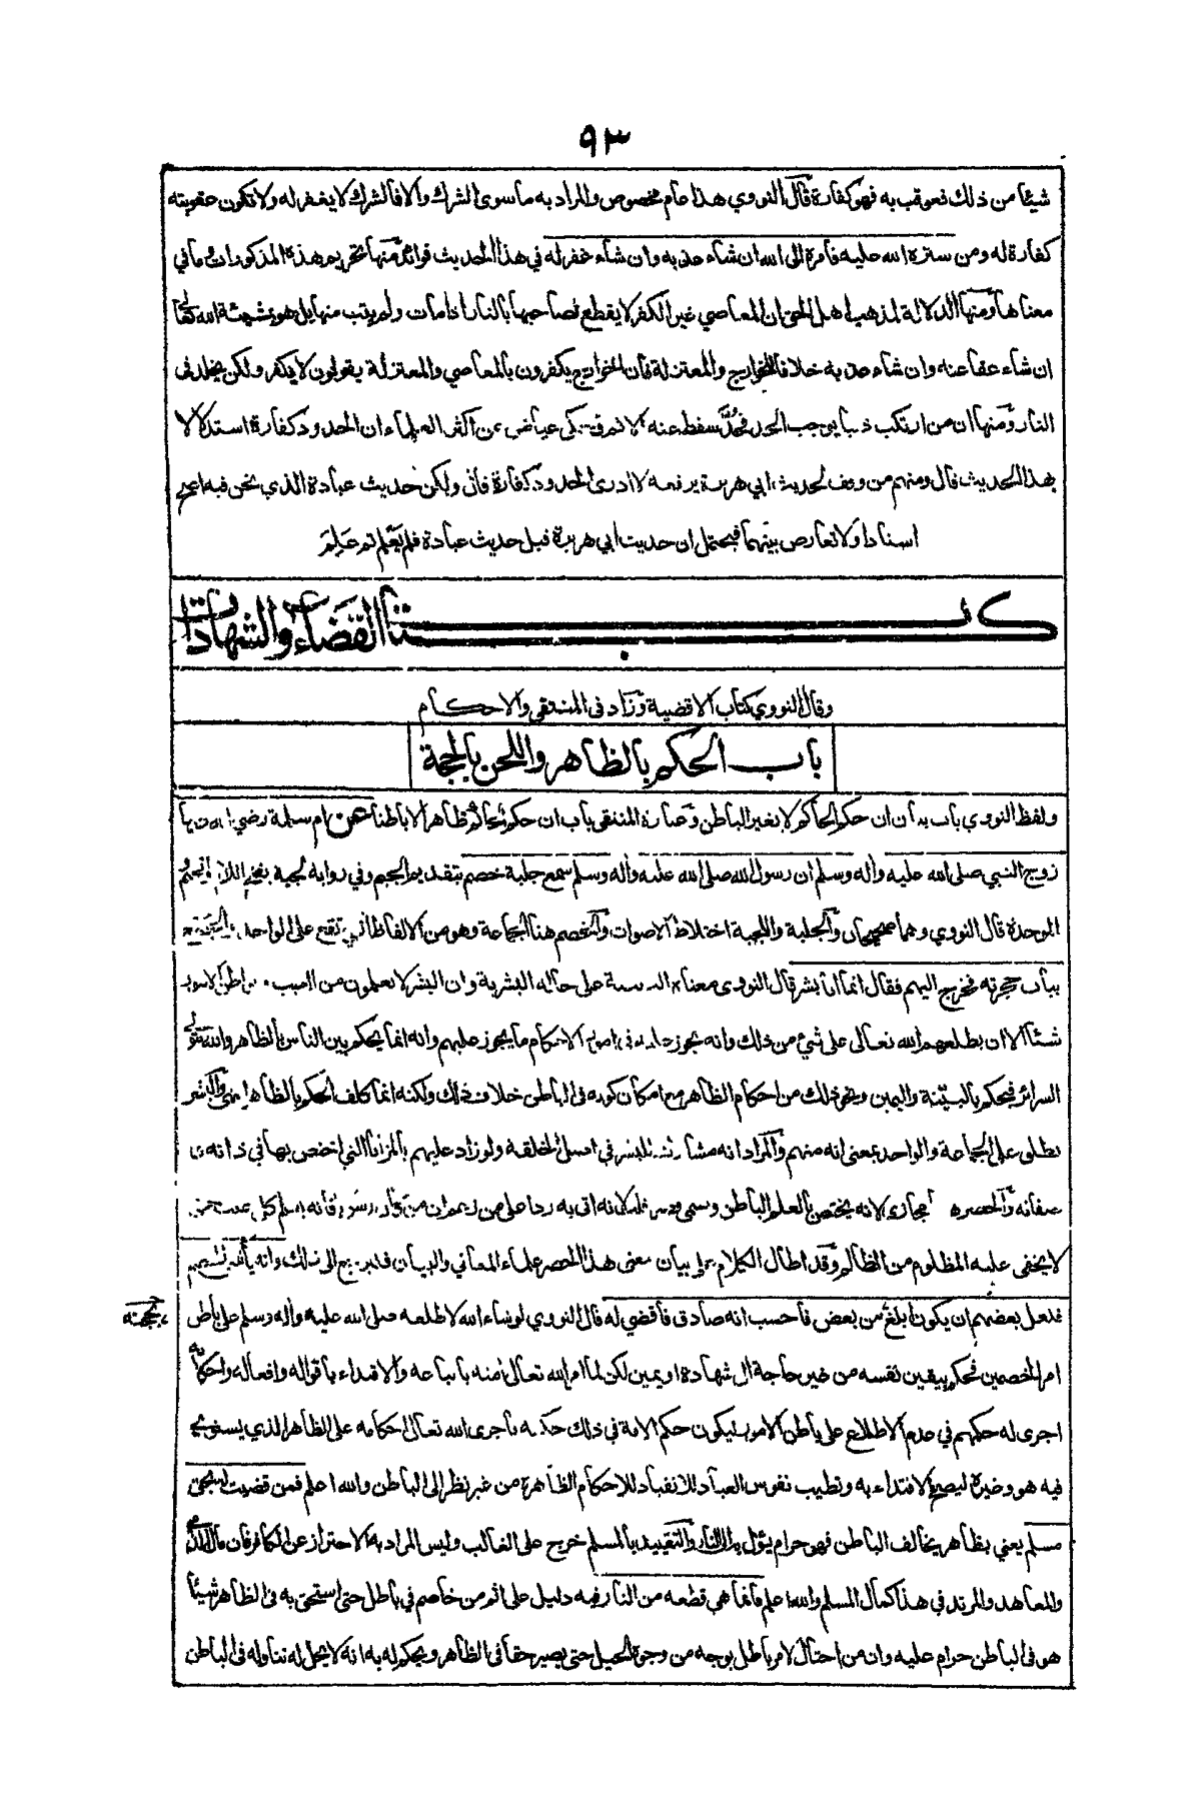 ٩٣
شيئا من ذلك فعوقب به فهو كفارة قال النووي هذا عام مخصوص والمراد به ما سوى الشرك والا فالشرك لا يغفر له ولا تكون عقوبته
كفارة له ومن ستره الله عليه فامره الى الله ان شاء عذبه وان شاء غفر له في هذا الحديث فوائد منها تحريم هذه المذكورات وما في
معناها ومنها الدلالة لمذهب اهل الحق ان المعاصي غير الكفر لا يقطع لصاحبها بالنار اذا مات ولم يتب منها بل هو بمشيئة الله تعالى
ان شاء عفا عنه وان شاء عذبه خلافا للخوارج والمعتزلة فان الخوارج يكفرون بالمعاصي والمعتزلة يقولون لا يكفر ولكن يخلد في
النار ومنها ان من ارتكب ذنبا يوجب الحد فحد سقط عنه الاثم قال عياض عن اكثر العلماء ان الحدود كفارة استدلالا
بهذا الحديث قال ومنهم من وقف لحديث ابي هريرة يرفعه لا ادري الحدود كفارة قال ولكن حديث عبادة الذي نحن فيه اصح
اسنادا ولا تعارض بينهما فيحتمل ان حديث ابي هريرة قبل حديث عبادة فلم يعلم ثم علم
كتاب القضاء والشهادات
وقال النووي كتاب الاقضية وزاد في المنتقى والاحكام
باب الحكم بالظاهر واللحن بالحجة
ولفظ النووي باب بيان ان حكم الحاكم لا يغير الباطن وعبارة المنتقى باب ان حكم الحاكم ظاهرا لا باطنا عن ام سلمة رضي الله عنها
زوج النبي صلى الله عليه واله وسلم ان رسول الله صلى الله عليه واله وسلم سمع جلبة خصم بتقديم الجيم وفي رواية لجبة بتقديم اللام
الموحدة قال النووي وهما صحيحان والجلبة واللجبة اختلاط الاصوات والخصم هنا الجماعة وهو من الالفاظ التي تقع على الواحد والجمع
بباب حجرته فخرج اليهم فقال انما انا بشر قال النووي معناه التنبيه على حالة البشرية وان البشر لا يعلمون من الغيب وبواطن الامور
شيئا الا ان يطلعهم الله تعالى على شيء من ذلك وانه يجوز عليه في امور الاحكام ما يجوز عليهم وانه انما يحكم بين الناس بالظاهر والله يتولى
السرائر فيحكم بالبينة واليمين ونحو ذلك من احكام الظاهر مع امكان كونه في الباطن خلاف ذلك ولكنه انما كلف الحكم بالظاهر انتهى والبشر
يطلق على الجماعة والواحد بمعنى انه منهم والمراد انه مشارك للبشر في اصل الخلقة ولو زاد عليهم بالمزايا التي اختص بها في ذاته
صفاته والحصر مجازي لانه يختص بالعلم الباطن ويسمى قصر قلب لانه اتى به ردا على من زعم ان من كان رسولا فانه يعلم كل غيب حتى
لا يخفى عليه المظلوم من الظالم وقد اطال الكلام على بيان معنى هذا الحصر علماء المعاني والبيان فليرجع الى ذلك وانه يأتيني الخصم
فلعل بعضهم ان يكون ابلغ من بعض فاحسب انه صادق فاقضي له قال النووي لو شاء الله لاطلعه صلى الله عليه واله وسلم على باطن
بحجته
امر الخصمين فحكم بيقين نفسه من غير حاجة الى شهادة او يمين لكن لما امر الله تعالى امته باتباعه والاقتداء باقواله وافعاله واحكامه
اجرى له حكمهم في عدم الاطلاع على باطن الامور ليكون حكم الامة في ذلك حكمه فاجرى الله تعالى احكامه على الظاهر الذي يستوي
فيه هو وغيره ليصح الاقتداء به وتطييب نفوس العباد للانقياد للاحكام الظاهرة من غير نظر الى الباطن والله اعلم فمن قضيت له بحق
مسلم يعني بظاهر يخالف الباطن فهو حرام يؤل به الى النار والتقييد بالمسلم خرج على الغالب وليس المراد به الاحتراز عن الكافر فان مال الذمي
والمعاهد والمرتد في هذا كمال المسلم والله اعلم فانما هي قطعة من النار فيه دليل على اثم من خاصم في باطل حتى استحق به في الظاهر شيئا
هو في الباطن حرام عليه وان من احتال لامر باطل بوجه من وجوه الحيل حتى يصير حقا في الظاهر ويحكم له به انه لا يحل له تناوله في الباطن